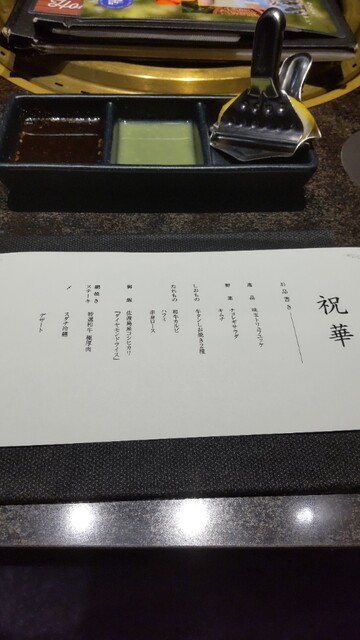 祝華
お品書き
逸品 味玉トリュフユッケ
野菜 チョレギサラダ
キムチ
しおもの 牛タンしお焼き2種
たれもの 和牛カルビ
ハラミ
赤身ロース
御飯 佐渡島産コシヒカリ
『ダイヤモンドライス』
網焼き
ステーキ 特選和牛 極厚肉
〆 スダチ冷麺
デザート